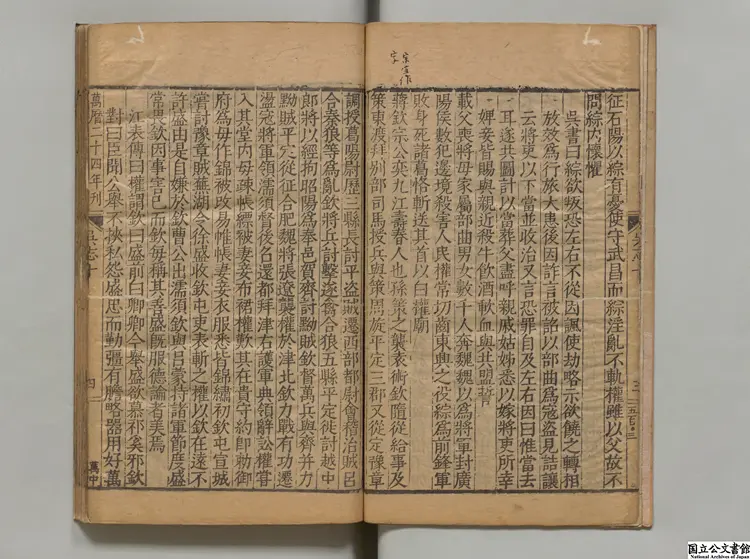 征石陽以綜有憂使守武昌而綜淫亂不軌權雖以父故不
問綜内懷懼
吳書曰綜欲叛恐左右不從因諷使劫略示欲饒之轉相
放效為行旅大患後因詐言被詔以部曲為寇盜見詰讓
云將吏以下當並收治又言恐罪自及左右因曰惟當去
耳遂共圖計以當葬父盡呼親戚姑姊悉以嫁將吏所幸
婢妾皆賜與親近殺牛飲酒歃血與共盟誓
載父喪將母家屬部曲男女數千人奔魏魏以為將軍封廣
陽侯數犯邊境殺害人民權常切齒東興之役綜為前鋒軍
敗身死諸葛恪斬送其首以白權廟
蔣欽字公奕九江壽春人也孫策之襲袁術欽隨從給事及
策東渡拜別部司馬授兵與策周旋平定三郡又從定豫章
調授葛陽尉歷三縣長討平盜賊遷西部都尉會稽冶賊吕
合秦狼等為亂欽將兵討擊遂禽合狼五縣平定徙討越中
郎將以經拘昭陽為奉邑賀齊討黟賊欽督萬兵與齊并力
黟賊平定從征合肥魏將張遼襲權於津北欽力戰有功遷
盪寇將軍領濡須督後召還都拜津右護軍典領辭訟權嘗
入其堂内母疎帳縹被妻妾布裙權歎其在貴守約即勑御
府為母作錦被改易帷帳妻妾衣服悉皆錦繡初欽屯宣城
嘗討豫章賊蕪湖令徐盛收欽屯吏表斬之權以欽在遠不
許盛由是自嫌於欽曹公出濡須欽與吕蒙持諸軍節度盛
常畏欽因事害已而欽每稱其善盛既服德論者美焉
江表傳曰權謂欽曰盛前白卿卿今舉盛欲慕祁奚邪欽
對曰臣聞公舉不挾私怨盛忠而勤彊有膽略器用好萬
萬曆二十四年刊
吳志十
四
国立公文書館
National Archives of Japan